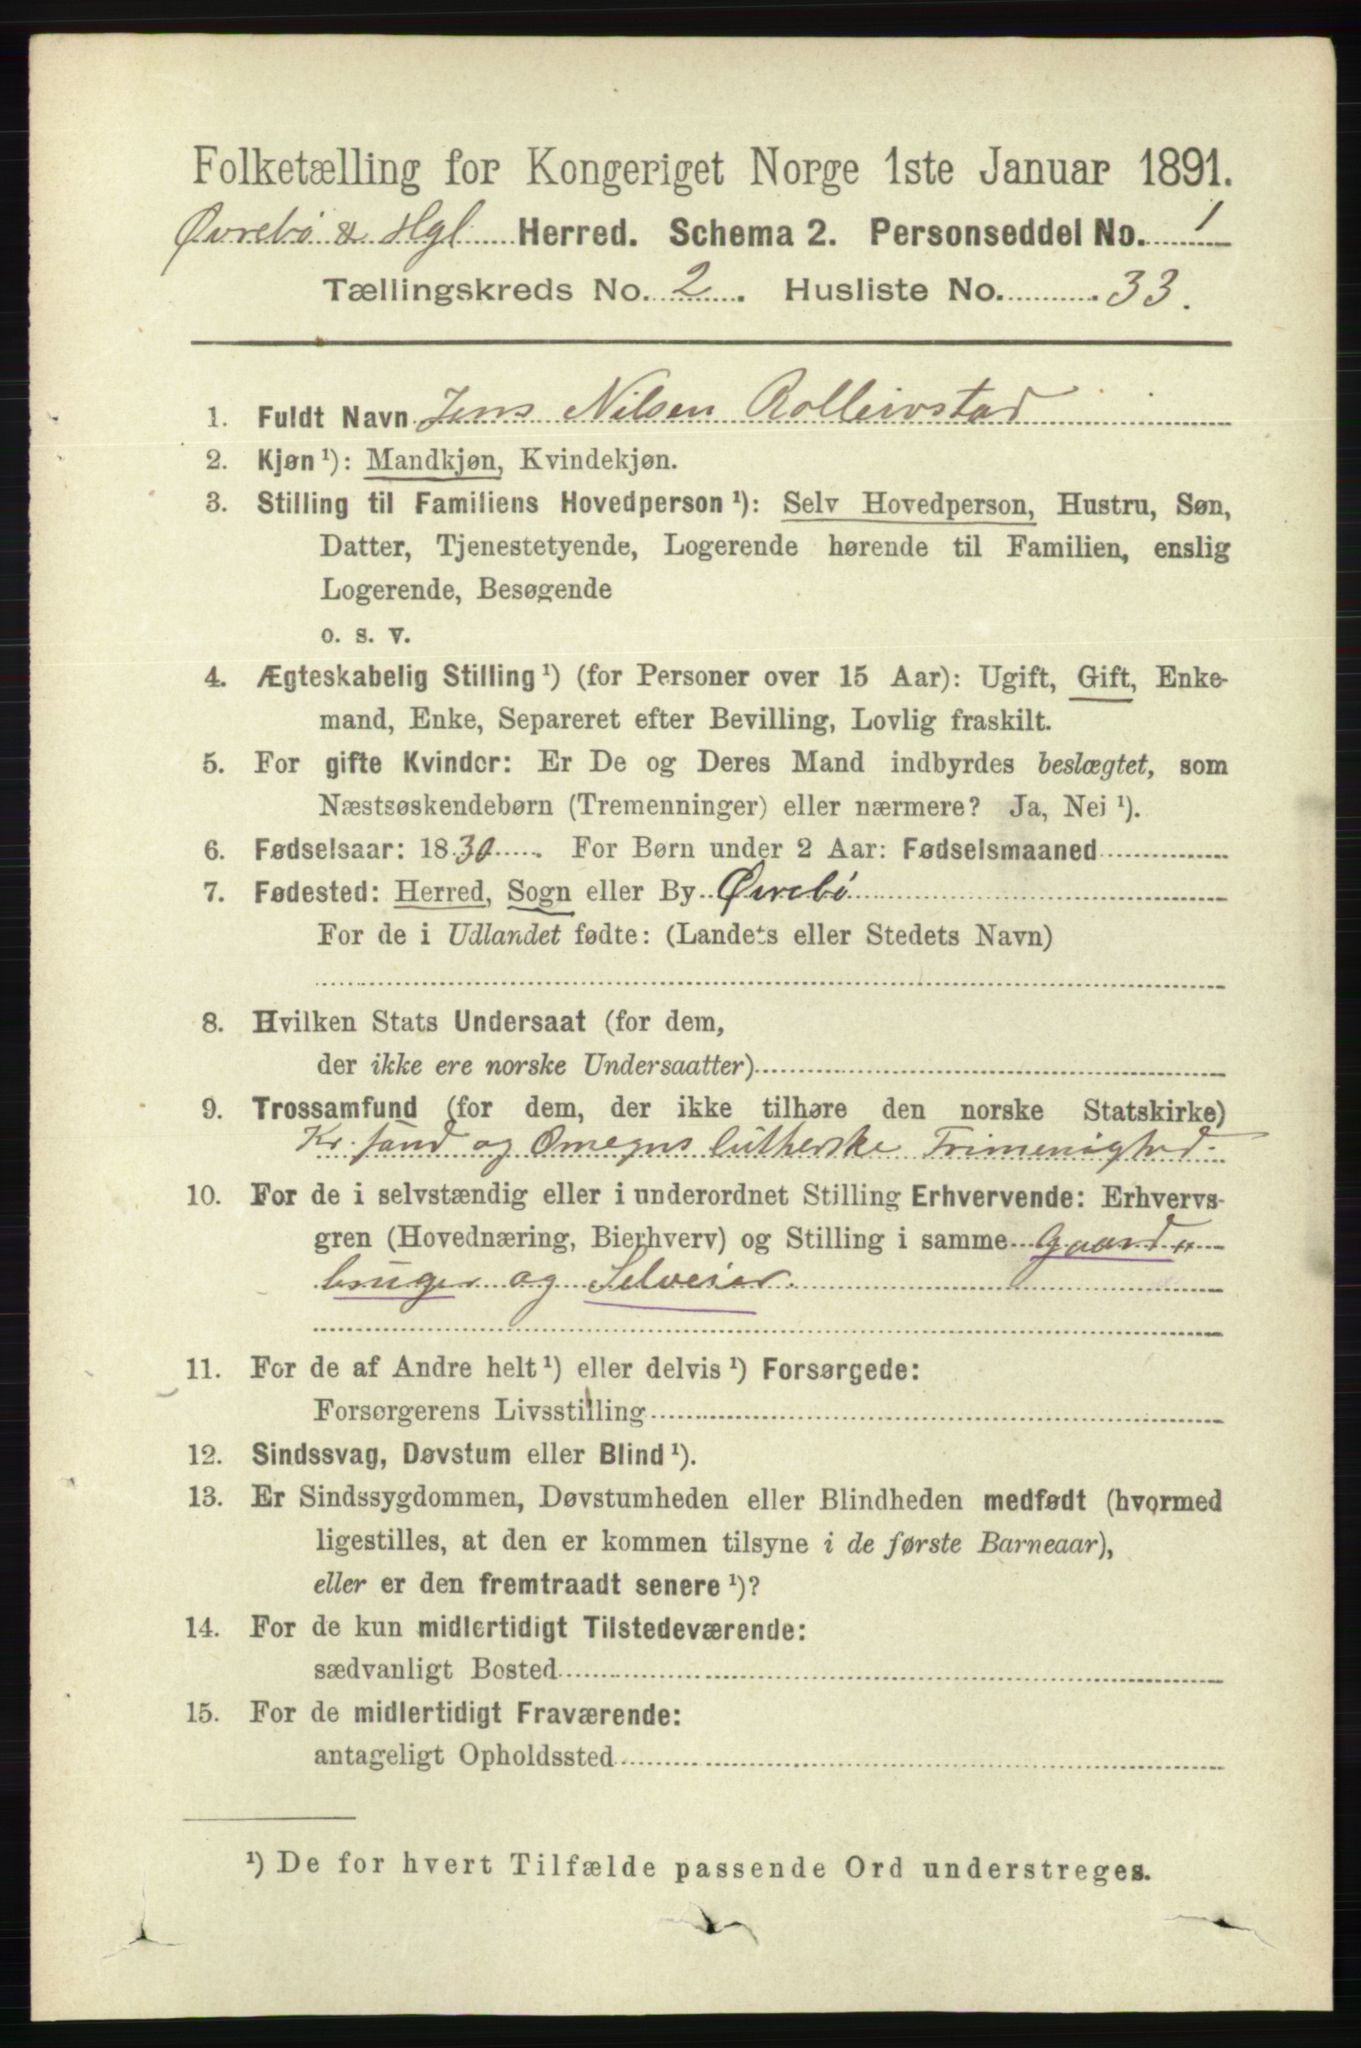 Folketælling for Kongeriget Norge 1ste Januar 1891.
Øvrebø & Hgl Herred. Schema 2. Personseddel No. 1
Tællingskreds No. 2. Husliste No. 33.
1. Fuldt Navn Jens Nilsen Rolleivstad
2. Kjøn ¹): Mandkjøn, Kvindekjøn.
3. Stilling til Familiens Hovedperson ¹): Selv Hovedperson, Hustru, Søn,
Datter, Tjenestetyende, Logerende hørende til Familien, enslig
Logerende, Besøgende
o. s. v.
4. Ægteskabelig Stilling ¹) (for Personer over 15 Aar): Ugift, Gift, Enke-
mand, Enke, Separeret efter Bevilling, Lovlig fraskilt.
5. For gifte Kvinder: Er De og Deres Mand indbyrdes beslægtet, som
Næstsøskendebørn (Tremenninger) eller nærmere? Ja, Nei ¹).
6. Fødselsaar: 1830. For Børn under 2 Aar: Fødselsmaaned
7. Fødested: Herred, Sogn eller By Øvrebø
For de i Udlandet fødte: (Landets eller Stedets Navn)
8. Hvilken Stats Undersaat (for dem,
der ikke ere norske Undersaatter)
9. Trossamfund (for dem, der ikke tilhøre den norske Statskirke)
Kr.sand og Omegns lutherske Frimenighed.
10. For de i selvstændig eller i underordnet Stilling Erhvervende: Erhvervs-
gren (Hovednæring, Bierhverv) og Stilling i samme Gaard-
bruger og Selveier.
11. For de af Andre helt ¹) eller delvis ¹) Forsørgede:
Forsørgerens Livsstilling
12. Sindssvag, Døvstum eller Blind ¹).
13. Er Sindssygdommen, Døvstumheden eller Blindheden medfødt (hvormed
ligestilles, at den er kommen tilsyne i de første Barneaar),
eller er den fremtraadt senere ¹)?
14. For de kun midlertidigt Tilstedeværende:
sædvanligt Bosted
15. For de midlertidigt Fraværende:
antageligt Opholdssted
¹) De for hvert Tilfælde passende Ord understreges.